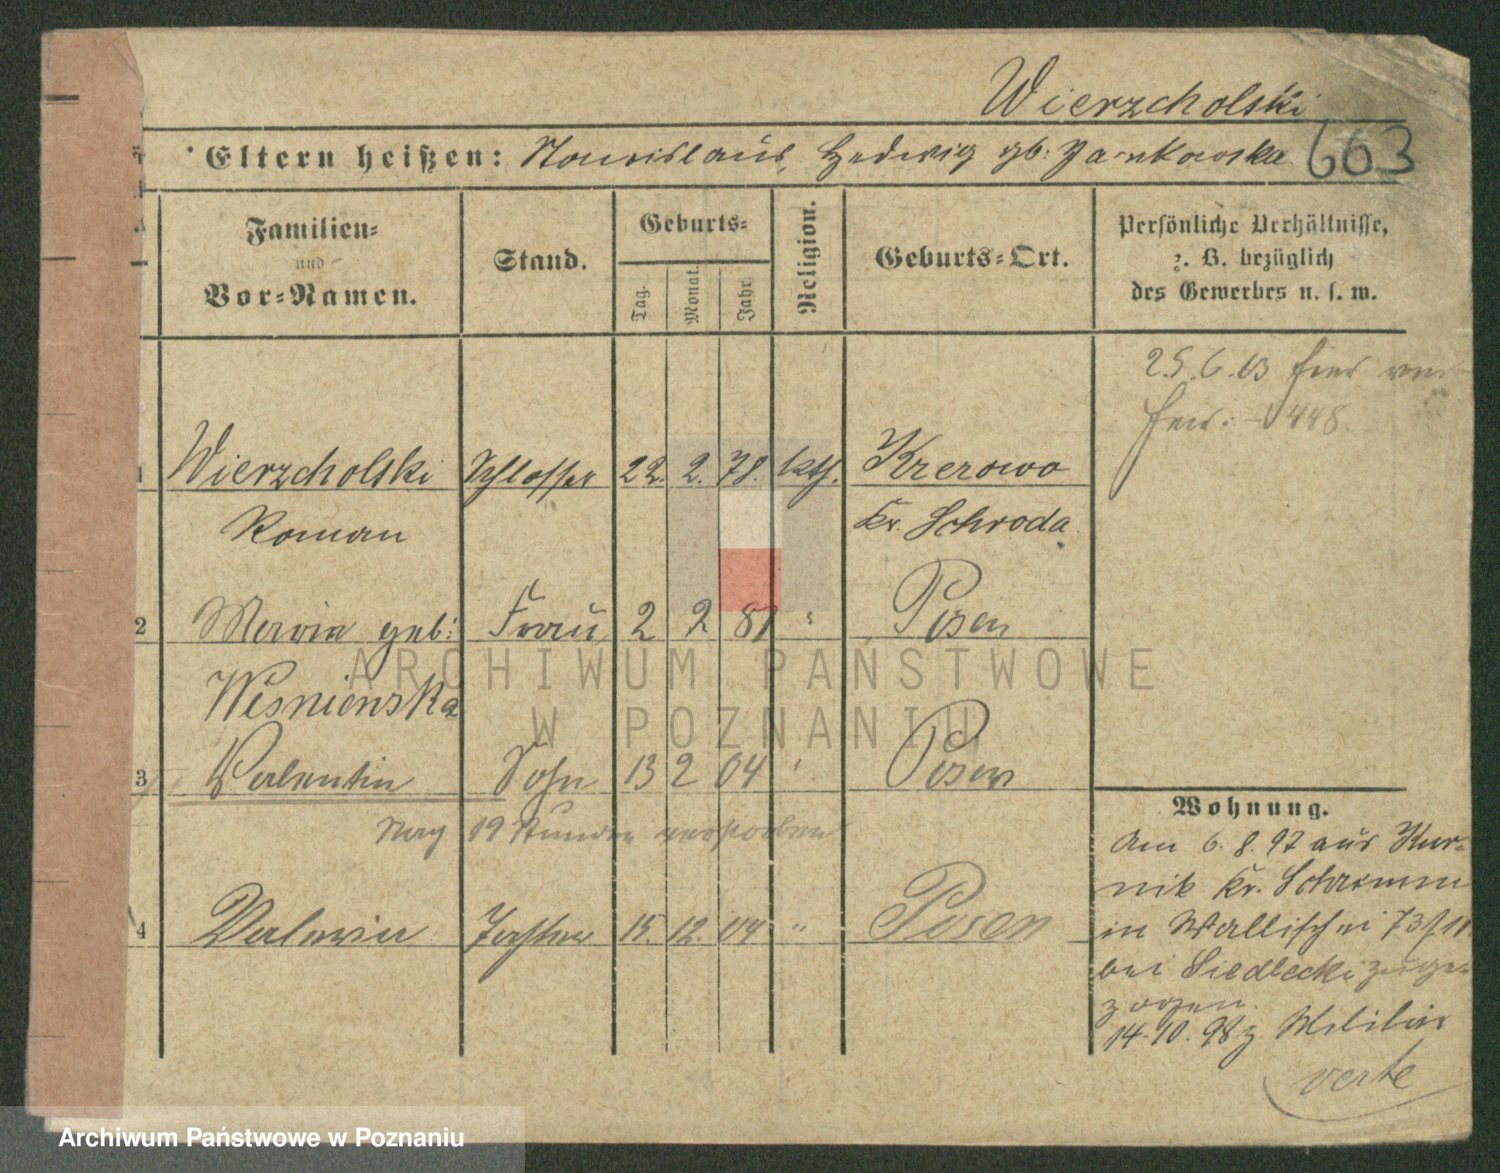 Wierzcholski
Eltern heißen: Stanislaus, Hedwig gb: Jankowska 663
Familien-
und
Vor-Namen.
Stand.
Geburts-
Tag.
Monat.
Jahr.
Religion.
Geburts-Ort.
Persönliche Verhältnisse,
z. B. bezüglich
des Gewerbes u. s. w.
25.6.03
448.
1 Wierzcholski Schlosser 22. 2. 78. kth. Krerowo
Roman Kr. Schroda
2 Maria geb: Frau 2 2 81 " Posen
Wisnienska
3 Valentin Sohn 13 2 04 " Posen
Nach 19 Stunden verstorben
4 Valeria Tochter 15. 12. 04 " Posen
Wohnung.
Am 6. 8. 97 aus Kur-
nik Kr. Schrimm
in Wallischei 73/11
bei Siedlecki zuge-
zogen.
14.10.98 z. Militär
verte
ARCHIWUM PAŃSTWOWE
W POZNANIU
Archiwum Państwowe w Poznaniu